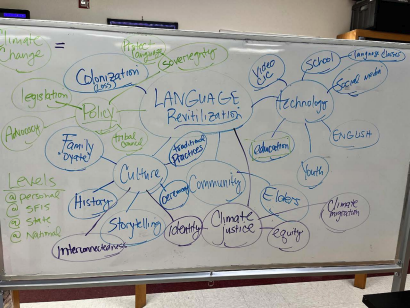 Climate
Change
=
Colonization
Loss
sovereignty
legislation
Policy
Advocacy
tribal
council
LANGUAGE
Revitilization
Video
etc
School
language classes
Social media
technology
ENGLISH
education
Youth
Family
Traditional
Practices
Culture
Ceremony
Community
Elders
History
Storytelling
Identity
Interconnectedness
Climate
Justice
equity
Climate
migration
Levels
@ personal
@ SFIS
@ State
@ National